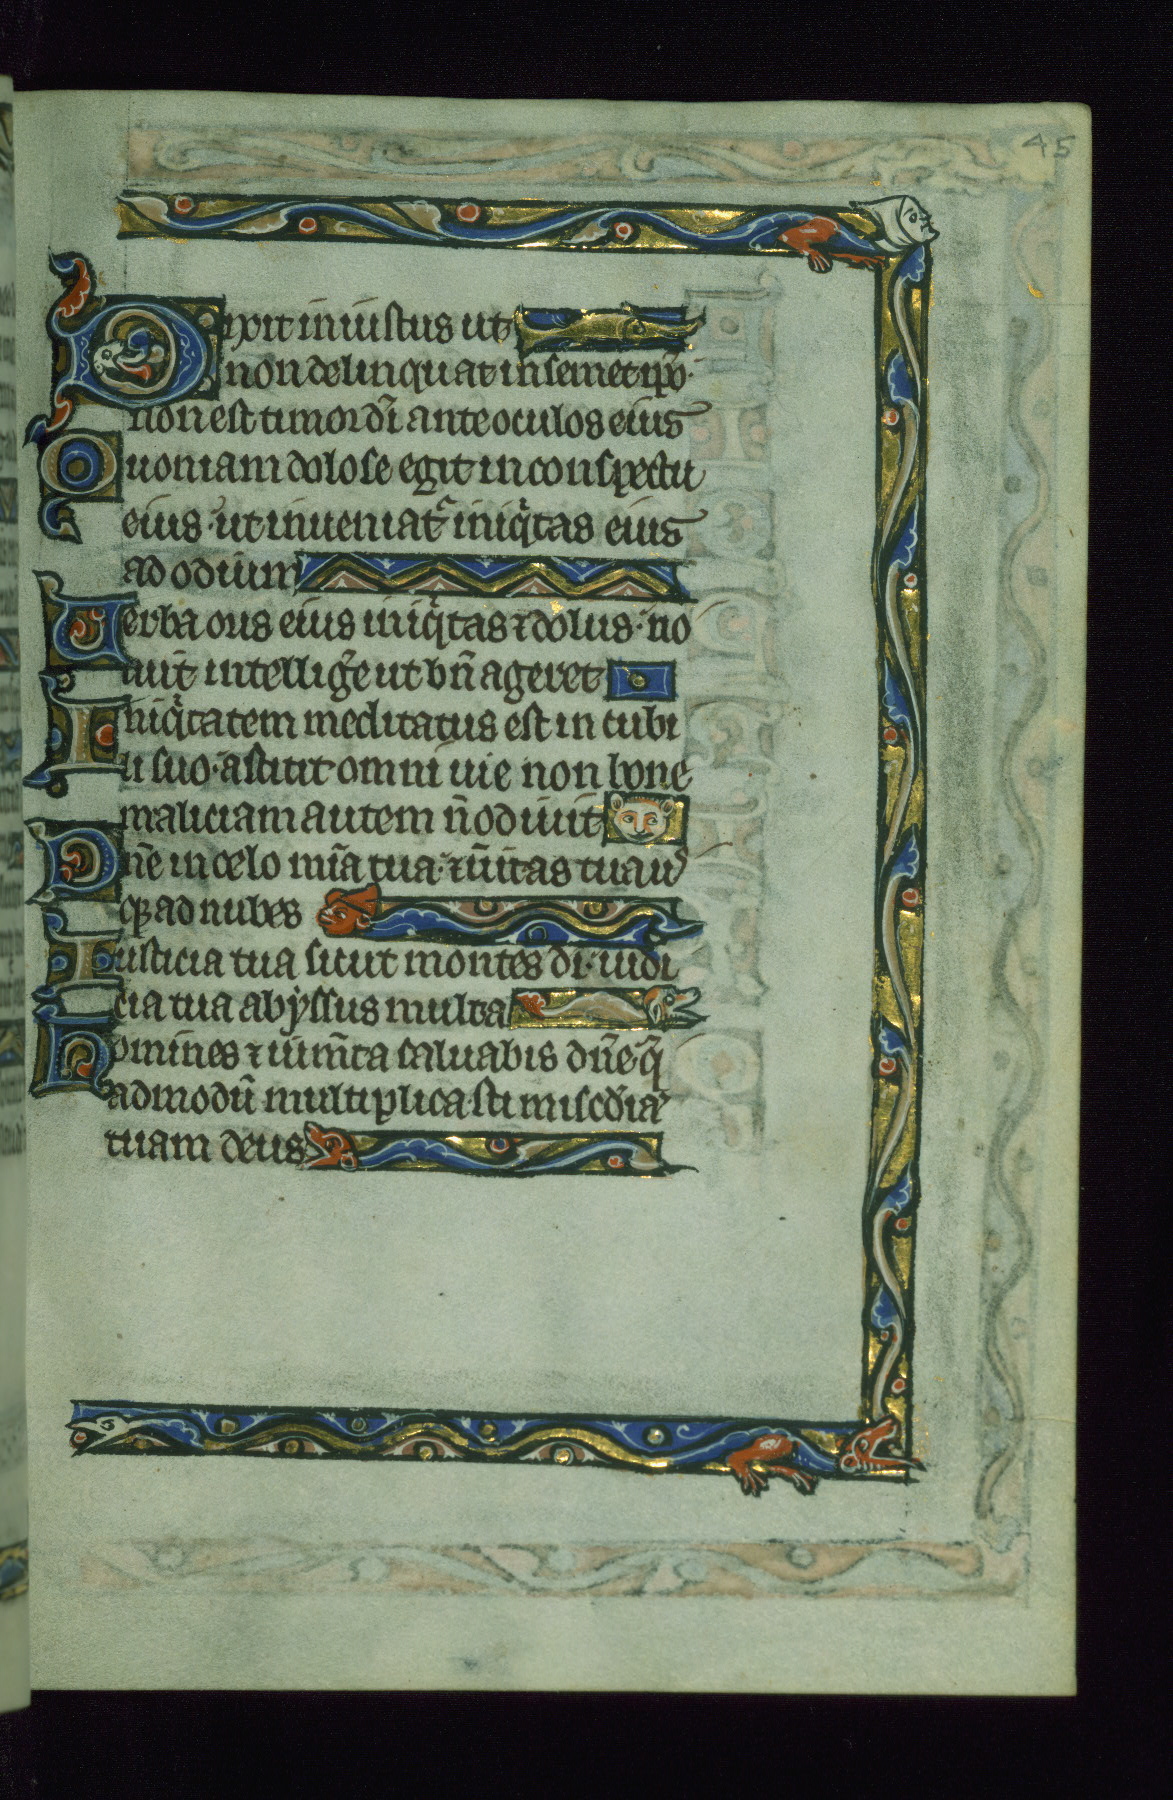 45
Dixit iniustus ut
non delinquat in semetip̄o·
non est timor dī ante oculos eius
Quoniam dolose egit in conspectu
eius· ut inueniat᷑ iniq̄tas eius
ad odium
Verba oris eius iniq̄tas ⁊ dolus· no
luit intelliḡe ut bn̄ ageret
Iniq̄tatem meditatus est in cubi
li suo· astitit omni uie non bone
maliciam autem n̄ odiuit
Dn̄e in celo mīa tua· ⁊ ūitas tua us
qꝫ ad nubes
Iusticia tua sicut montes dī· iudi
cia tua abyssus multa
Homines ⁊ ium̄ta saluabis dn̄e· q̄
admodū multiplicasti misc̄diā
tuam deus